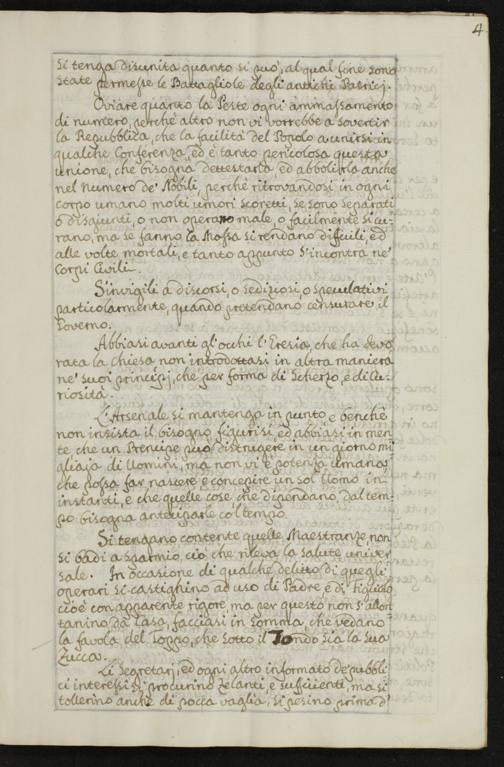 4
si tenga disunita quanto si può, al qual fine sono
state permesse le Battagliole degli antichi Patricj.
Oviare quanto la Peste ogni ammassamento
di numero, perche altro non vi vorrebbe a sovertir
la Republica, che la facilità del Popolo a unirsi in
qualche Conferenza, ed è tanto pericolosa questa
unione, che bisogna dettestarla, ed abbolirla anche
nel numero de' Nobili, perche ritrovandosi in ogni
corpo umano molti umori scoretti, se sono separati
o disgiunti, o non operano male, o facilmente si cu-
rano, ma se fanno la Massa si rendano difficili, ed
alle volte mortali, e tanto appunto s'incontra ne'
Corpi Civili.
S'invigili a discorsi, o sediziosi, o speculativi
particolarmente, quando pretendano censurare il
Governo.
Abbiasi avanti gl'occhi l'Eresia, che ha devo-
rata la chiesa non introdottasi in altra maniera
ne' suoi principj, che per forma di Scherzo, e di Cu-
riosità.
L'Arsenale si mantenga in punto, e benchè
non insista il bisogno figurisi, ed abbiasi in men-
te che un Prencipe può distrugere in un giorno mi-
gliaja di Uomini, ma non vi è potenza umana,
che possa far nascere e concepire un sol Uomo in
instanti, e che quelle cose che dipendano dal tem-
po bisogna anteciparle col tempo.
Si tengano contente quelle Maestranze, non
si badi a sparmio, ciò che rileva la salute univer-
sale. In occasione di qualche delitto di quegli
operarj si castighino ad uso di Padre, e di Figliuolo
cioè con apparente rigore, ma per questo non s'allon-
tanino da Casa, facciasi in somma, che vedano
la favola del Zoppo, che sotto il Tondo sia la sua
Zucca.
Li Segretarj, ed ogni altro informato de' pubbli-
ci interessi si procurino zelanti, e sufficienti, ma si
tollerino anche di pocca vaglia, si pesino prima d'